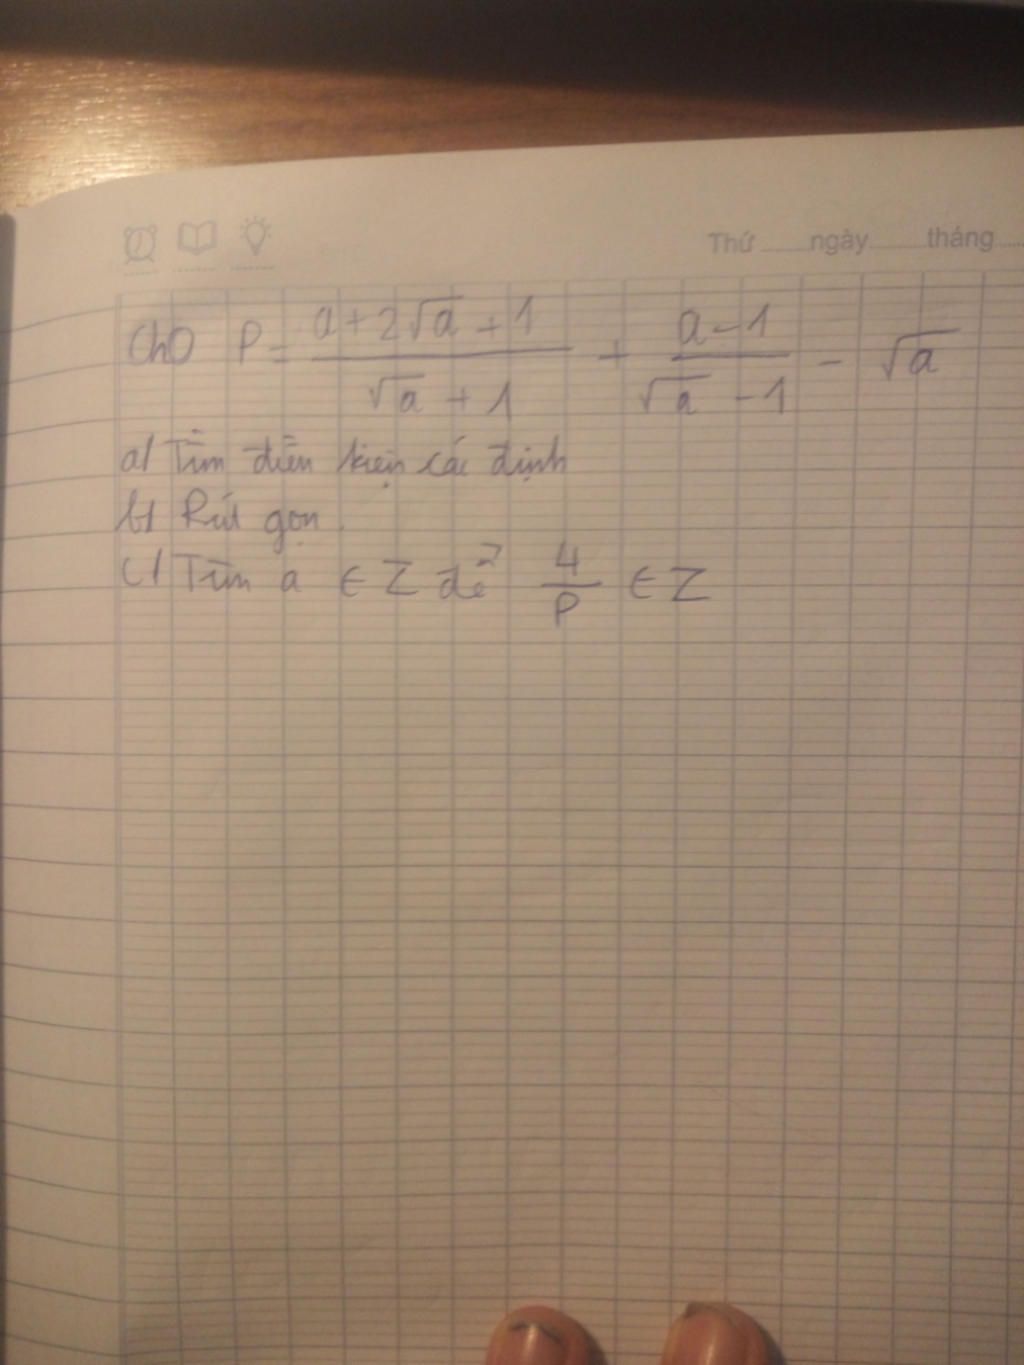 Thứ ......ngày......tháng......
Cho P = \frac{a+2\sqrt{a}+1}{\sqrt{a}+1} + \frac{a-1}{\sqrt{a}-1} - \sqrt{a}
a) Tìm điền kiện các định
b) Rút gọn.
c) Tìm a ∈ Z để \frac{4}{P} ∈ Z